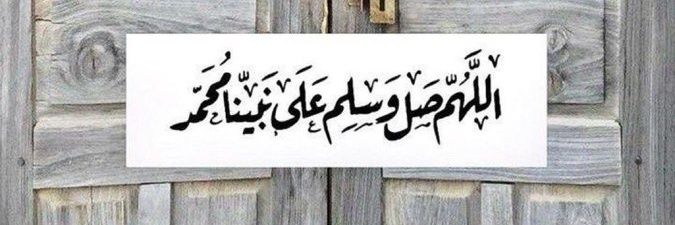 اللَّهُمَّ صَلِ وَسَلِم عَلَى نَبِيِّنَا مُحَمَّد